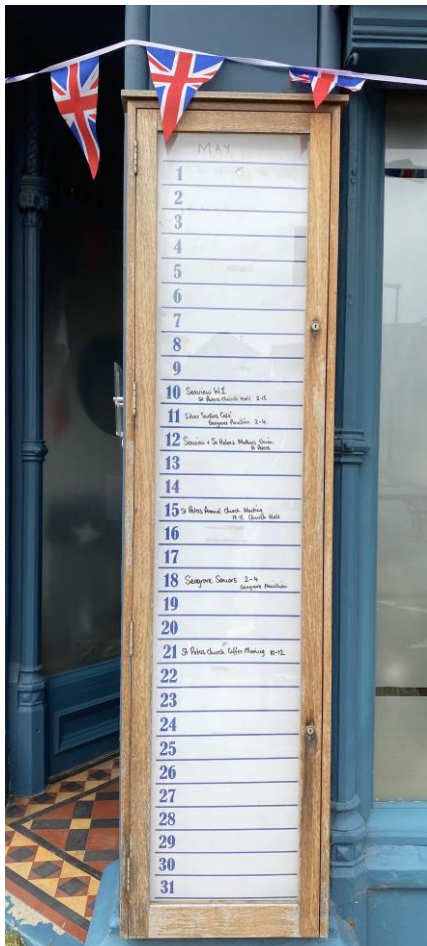 MAY
1
2
3
4
5
6
7
8
9
10 Seaview W.I
St Peters Church Hall 2-15
11 Silver Surfers Cafe
Seagrove Pavillion 2-4
12 Seaview & St Helens Mothers Union
St Peters
13
14
15 St Peters Annual Church Meeting
Church Hall
16
17
18 Seagrove Seniors 2-4
Seagrove Pavillion
19
20
21 St Peters Church Coffee Morning 10-12
22
23
24
25
26
27
28
29
30
31